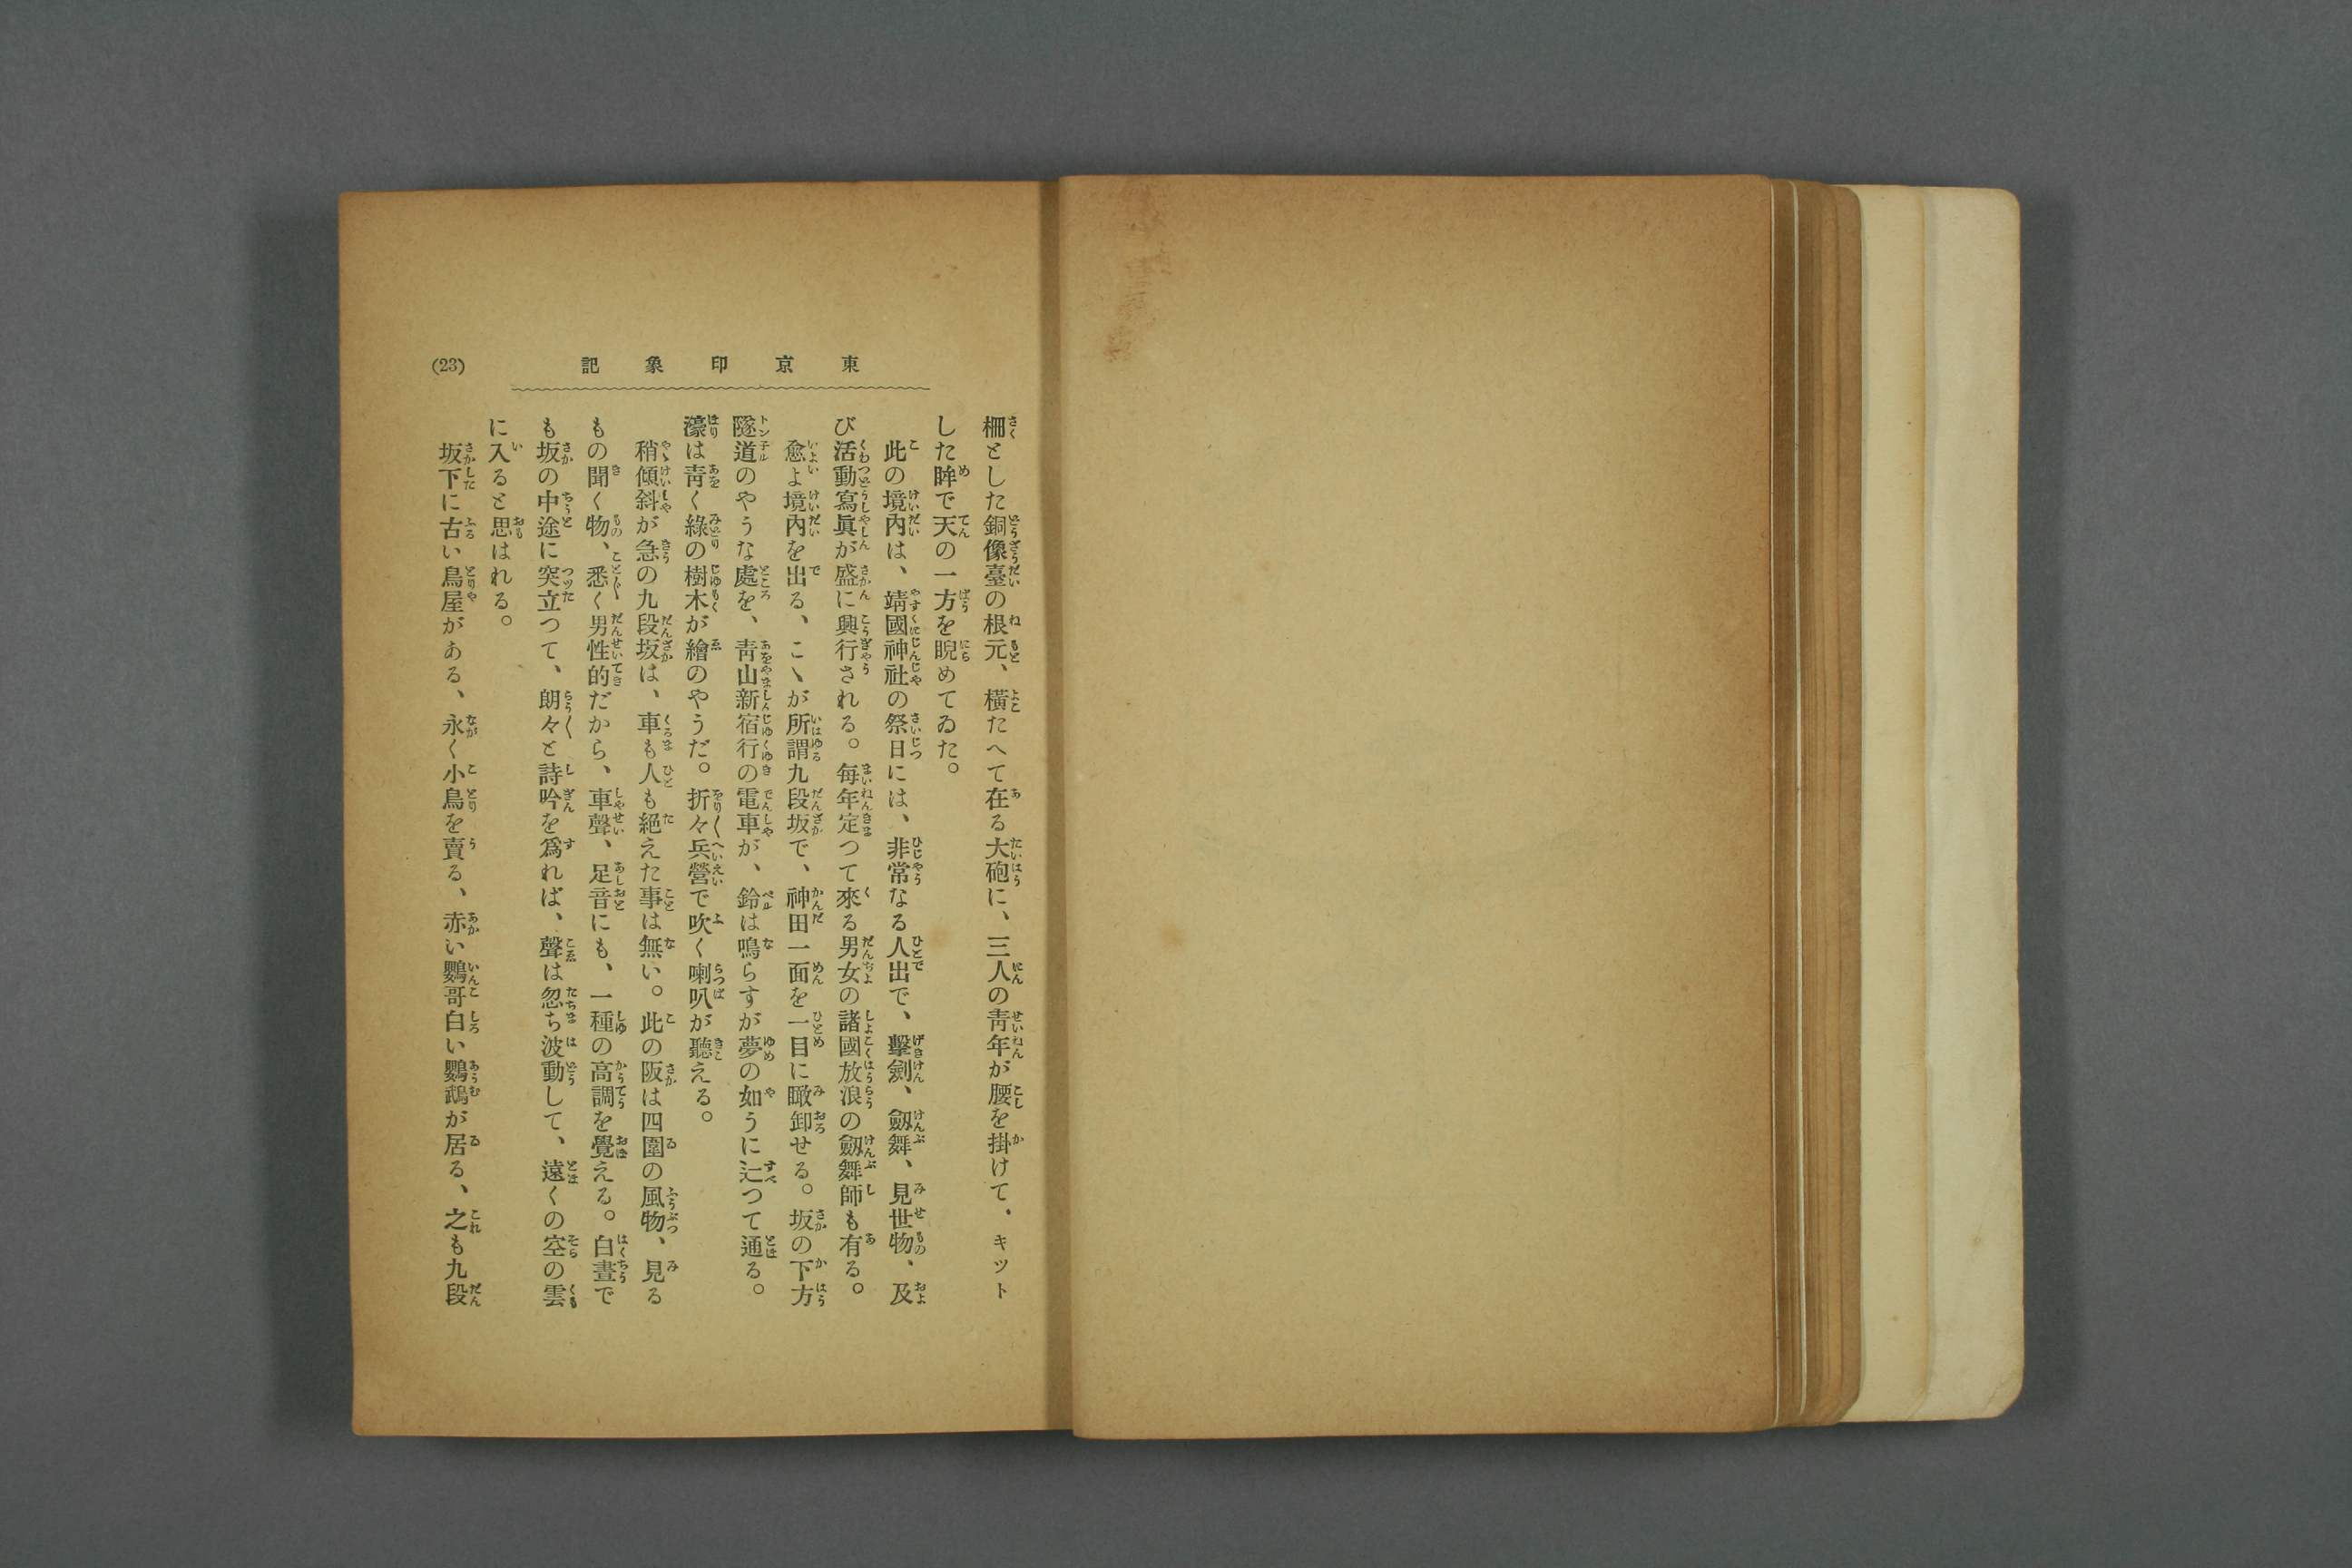 東京印象記
(23)
柵とした銅像臺の根元、橫たへて在る大砲に、三人の靑年が腰を掛けて、キット
した眸で天の一方を睨めてゐた。
此の境內は、靖國神社の祭日には、非常なる人出で、擊劍、劔舞、見世物、及
び活動寫眞が盛に興行される。每年定つて來る男女の諸國放浪の劔舞師も有る。
愈よ境內を出る、こヽが所謂九段坂で、神田一面を一目に瞰卸せる。坂の下方
隧道のやうな處を、靑山新宿行の電車が、鈴は鳴らすが夢の如うに辷つて通る。
濠は靑く綠の樹木が繪のやうだ。折々兵營で吹く喇叭が聽える。
稍傾斜が急の九段坂は、車も人も絕えた事は無い。此の阪は四圍の風物、見る
もの聞く物、悉く男性的だから、車聲、足音にも、一種の高調を覺える。白晝で
も坂の中途に突立つて、朗々と詩吟を爲れば、聲は忽ち波動して、遠くの空の雲
に入ると思はれる。
坂下に古い鳥屋がある、永く小鳥を賣る、赤い鸚哥白い鸚鵡が居る、之も九段